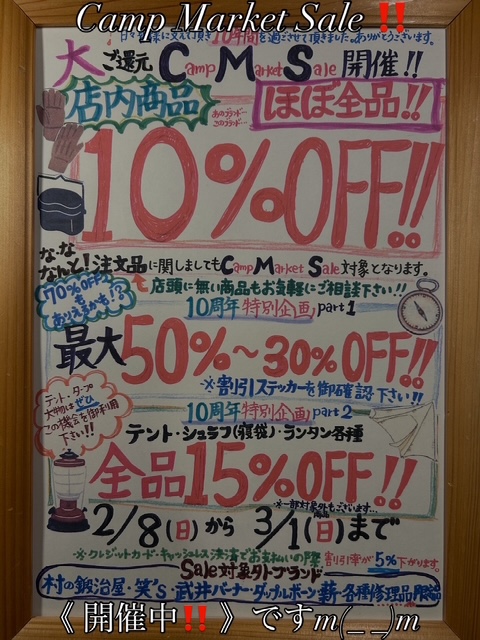 Camp Market Sale ‼️
日々皆様に支えて頂き10年間を過ごさせて頂きました。ありがとうございます。
大ご還元 Camp Market Sale 開催!!
店内商品
あのブランド…
このブランド…
ほぼ全品!!
10%OFF!!
な・な・なんと!注文品に関しましてもCamp Market Sale対象となります。
店頭に無い商品もお気軽にご相談下さい!!
70%OFFもありえるかも!?
10周年特別企画 part1
最大50%~30%OFF!!
※割引ステッカーを御確認下さい!!
10周年特別企画 part2
テント・タープ
大物はぜひ
この機会を御利用
下さい!!
テント・シュラフ(寝袋)・ランタン各種
全品15%OFF!!
※一部対象外もございます…
2/8(日)から 3/1(日)まで
※クレジットカード・キャッシュレス決済でお支払いの際 割引率が5%下がります。
Sale対象外ブランド
村の鍛治屋・笑's・武井バーナー・ダッチルボーン 薪・各種修理品
《 開催中‼️ 》ですm(_ _)m